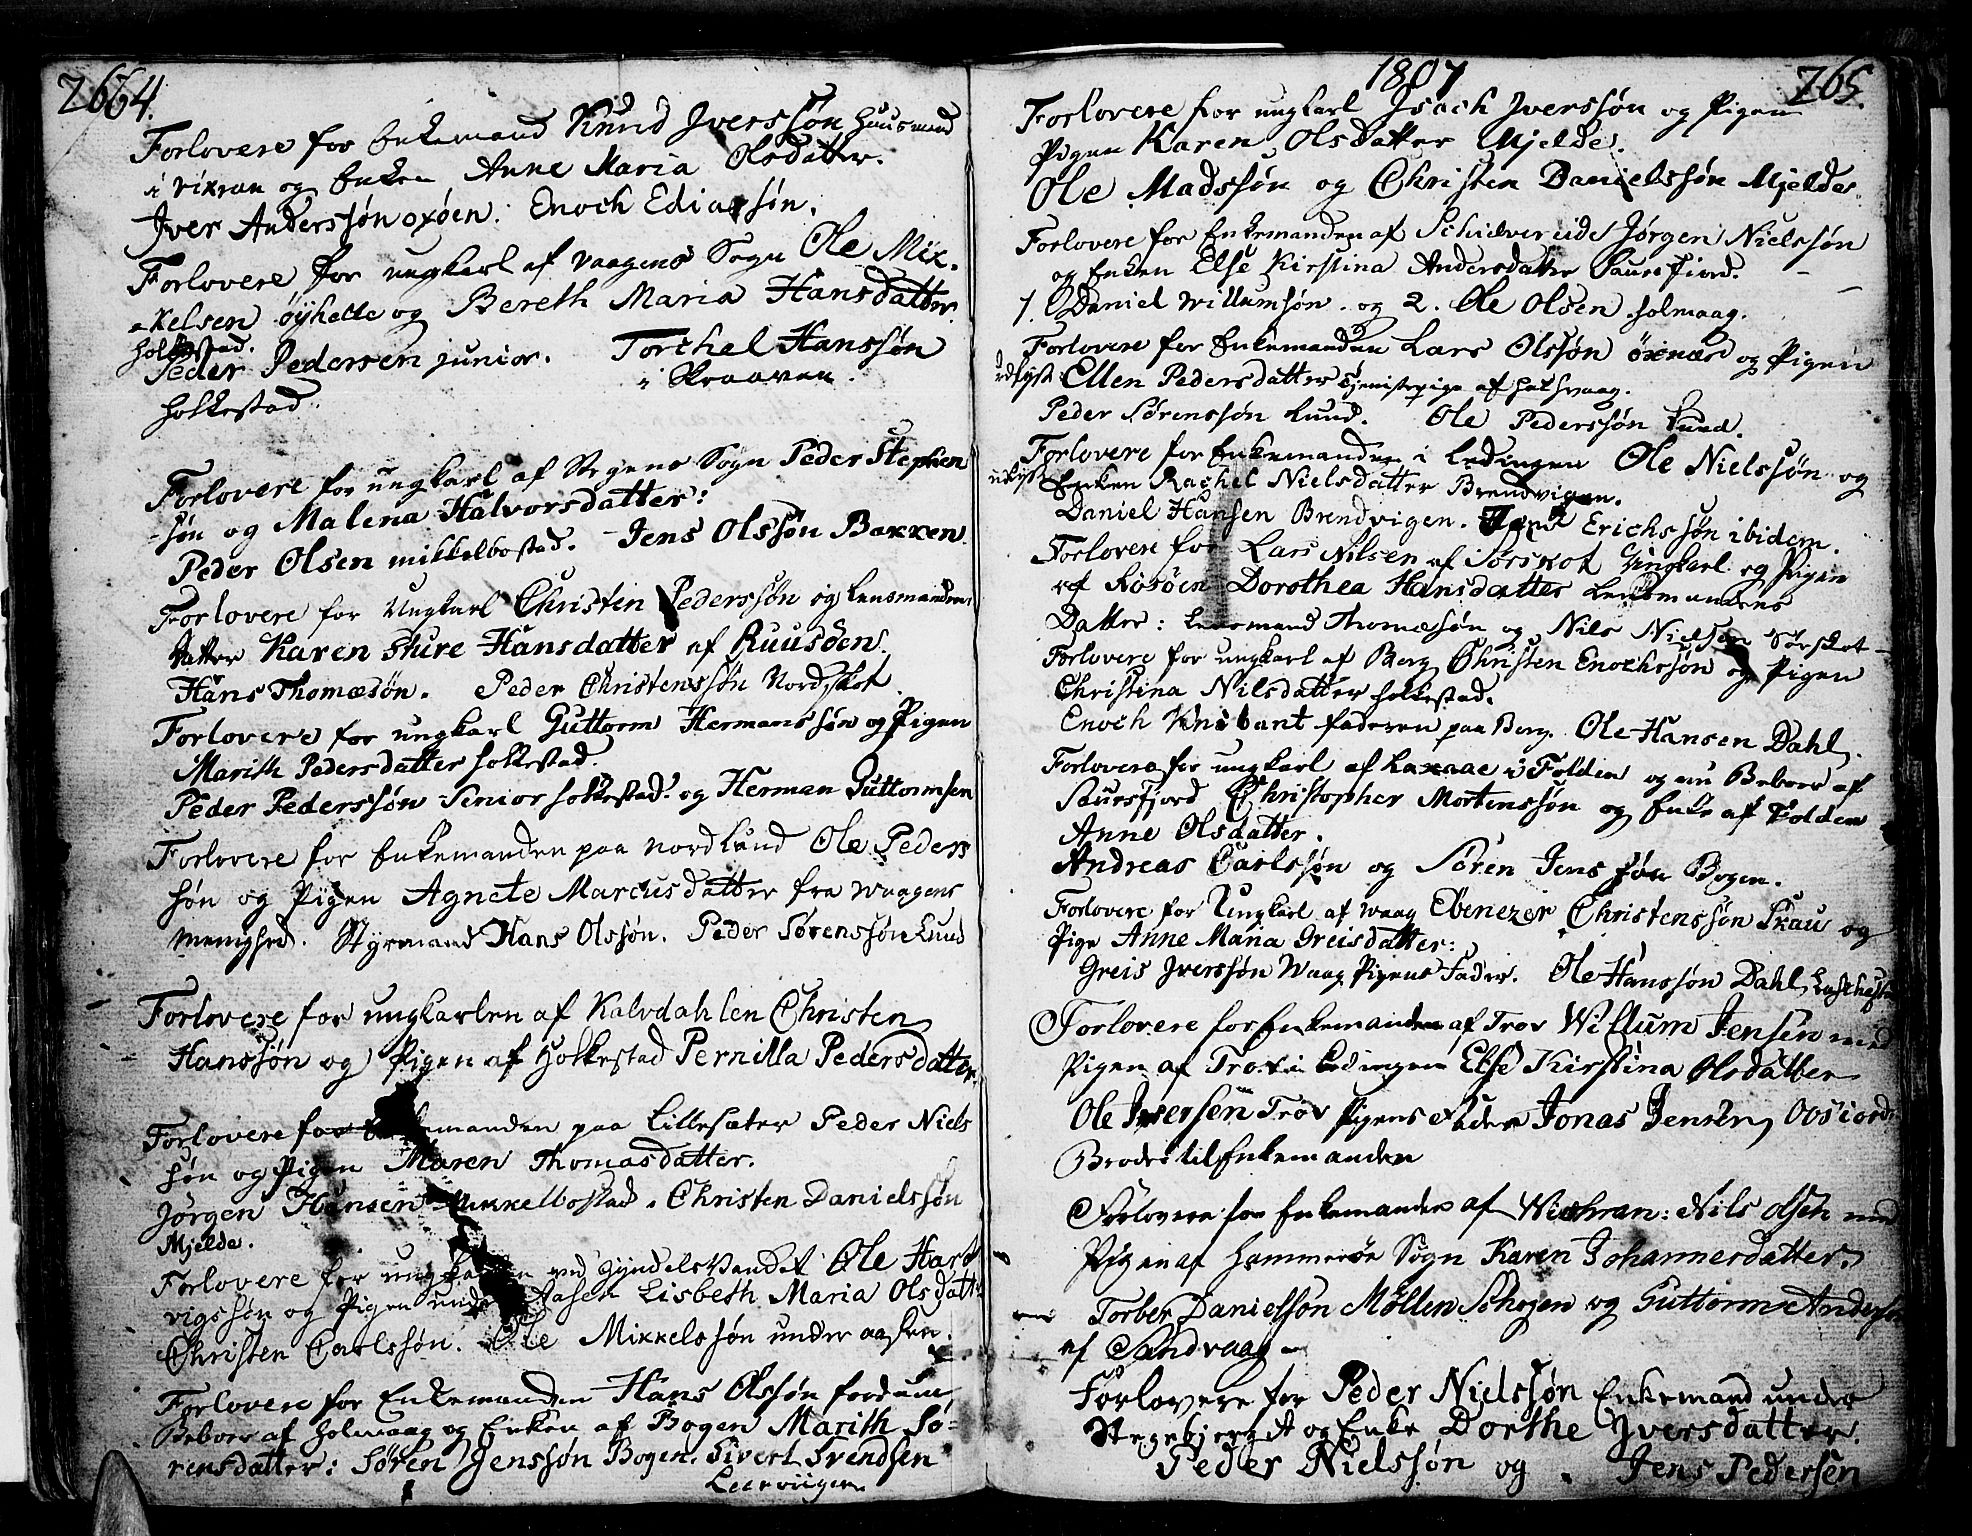 2664.
Forlovere for Enkemand Knud Iverssøn Huusmand
i Vixran og Enken Anne Maria Olsdatter.
Iver Anderssøn oxøen. Enoch Ediassøn.
Forlovere for ungkarl af Vaagens Sogn Ole Mix-
-kelsen øÿhelle og Bereth Maria Hansdatter
Holkestad.
Peder Pedersen junior. Torchel Hanssøn
Holkestad. i Skraaven.
Forlovere for ungkarl af Stegens Sogn Peder Stephen
-søn og Malena Halvorsdatter:
Peder Olsen mikkelbostad. Jens Olssøn Bakken
Forlovere for Ungkarl Christen Pederssøn og Lensmandens
Datter Karen Sture Hansdatter af Ruusøen.
Hans Thomæsøn. Peder Christenssøn Nordskot.
Forlovere for ungkarl Guttorm Hermanssøn og Pigen
Marith Pedersdatter Holkestad.
Peder Pederssøn Senior Holkestad. og Herman Guttormsen
Forlovere for Enkemanden paa Nordlund Ole Peders
søn og Pigen Agnete Marcusdatter fra Waagens
Menighed. Styrmand Hans Olssøn. Peder Sørenssøn Lund
Forlovere for ungkarlen af Kalvdahlen Christen
Hanssøn og Pigen af Holkestad Pernilla Pedersdatter.
Forlovere for Enkemanden paa Lillesæter Peder Niels
søn og Pigen Maren Thomasdatter.
Jørgen Hansen Mikkelbostad. Christen Danielssøn
Mjelde.
Forlovere for ungkarlen ved Gyndelsvandet Ole Hart
vigssøn og Pigen under Aasen Lisbeth Maria Olsdatter
Christen Carlssøn. Ole Mikkelssøn under aasen.
Forlovere for Enkemanden Hans Olssøn fordum
Beboer af Holmaag og Enken af Bogen Marith Sø-
rensdatter: Søren Jenssøn Bogen. Sivert Svendsen
Leerviigen
1807
265.
Forlovere for ungkarl Isach Iverssøn og Pigen
Pigen Karen Olsdatter Mjelde.
Ole Madssøn og Christen Danielssøn Mjelde.
Forlovere for Enkemanden af Schidvereide Jørgen Nielssøn
og Enken Else Kirstina Andersdatter Saursfiord.
1. Daniel Willumsøn. og 2. Ole Olsen Holmaag.
Forlovere for Enkemanden Lars Olssøn öxnæs og Pigen
Ellen Pedersdatter tjenistepige af
Peder Sörenssøn Lund. Ole Pederssøn Lund.
Forlovere for Enkemanden i Lødingen Ole Nielssøn og
Enken Rachel Nielsdatter Brendvigen.
Daniel Hansen Brendvigen. Erichssøn ibidem.
Forlovere for Lars Nilsen af Sørskot Ungkarl og Pigen
af Rosöen Dorothea Hansdatter Lensmandens
Datter: Lensmand Thomæsøn og Nils Nielsen Sørskot
Forlovere for ungkarl af Berg Christen Enochssøn og Pigen
Christina Nilsdatter Holkestad.
Enoch faderen paa Berg. Ole Hansen Dahl.
Forlovere for ungkarl af Laxaae i Folden og nu Beboer af
Saursfjord Christopher Mortenssøn og Enke af Folden
Anne Olsdatter.
Andreas Carlssøn og Sören Jens søn Bogen.
Forlovere for Ungkarl af Waag Ebenezer Christenssøn Skau og
Pige Anne Maria Greisdatter:
Greis Iverssøn Waag Pigens Fader. Ole Hanssøn Dahl
Forlovere for Enkemanden af Trov Willum Jensen med
Pigen af Trov i Lødingen Else Kirstina Olsdatter
Ole Iversen Trov Pigens Fader Jonas Jensen
Broder til Enkemanden
Forlovere for Enkemanden af Wichran: Nils Olsen med
Pigen af Hammerøe Sogn Karen Johannesdatter.
Torber Danielssøn Møllen Schogen og Guttorm Anderssøn
af Sandvaag
Forlovere for Peder Nielssøn Enkemand under
Stegebjerget og Enke Dorthe Iversdatter.
Peder Nielssøn og Jens Pedersen